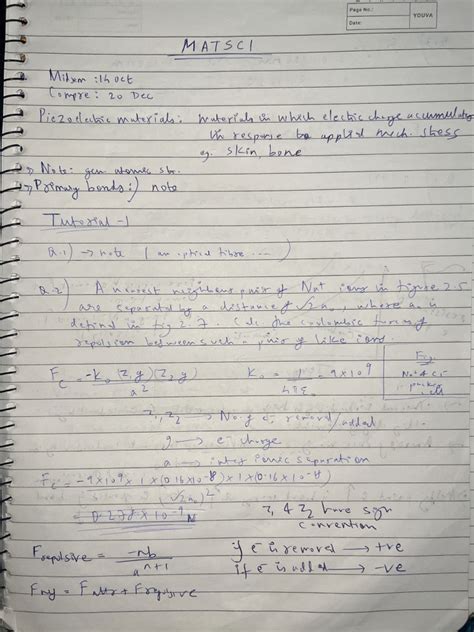 Page No.:
Date:
YOUVA
MATSCI
Midsem : 14 Oct
Compre : 20 Dec
Piezoelectric materials: materials in which electric charge accumulates
in response to applied mech. stress
eg. skin, bone
Note: gen atomic str.
Primary bonds:) note
Tutorial -1
Q.1) → note ( an optical fibre ....)
Q.2) A nearest neighbour pair of Na+ ions in figure 2.5
are separated by a distance of √2 a₀, where a₀ is
defined in fig 2.7. Calc the coulombic force of
repulsion between such a pair of like ions.
Fc = -k₀ (Z₁q)(Z₂q) / a²
k₀ = 1 / = 9×10⁹
Fig.
Na+ & Cl-
Z₁, Z₂ → No. of e⁻ removed/added
q → e⁻ charge
a → inter ionic separation
Fc = -9×10⁹ × 1 × (0.16×10⁻⁸) × 1 × (0.16×10⁻⁸) / (√2 a₀)²
Z₁ & Z₂ have sign
convention
F repulsive = -nb / aⁿ⁺¹
if e⁻ is removed → +ve
if e⁻ is added → -ve